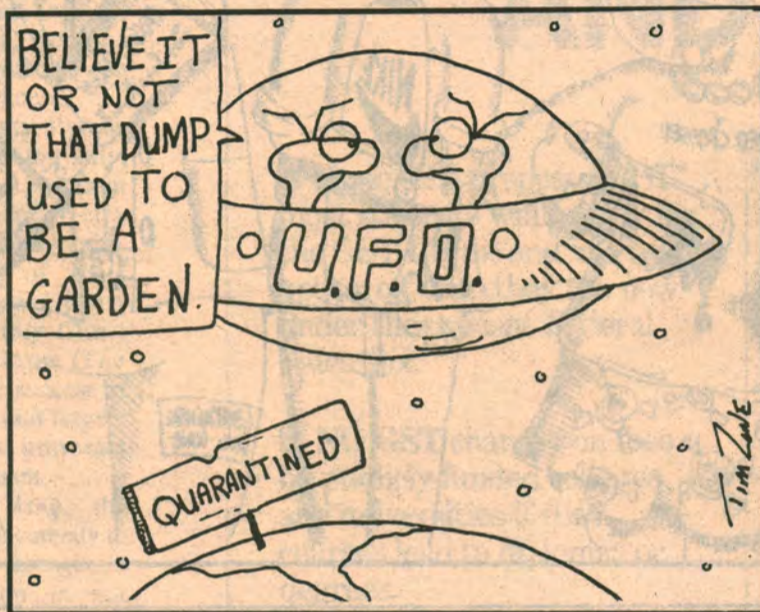 BELIEVE IT
OR NOT
THAT DUMP
USED TO
BE A
GARDEN.
U.F.O.
QUARANTINED